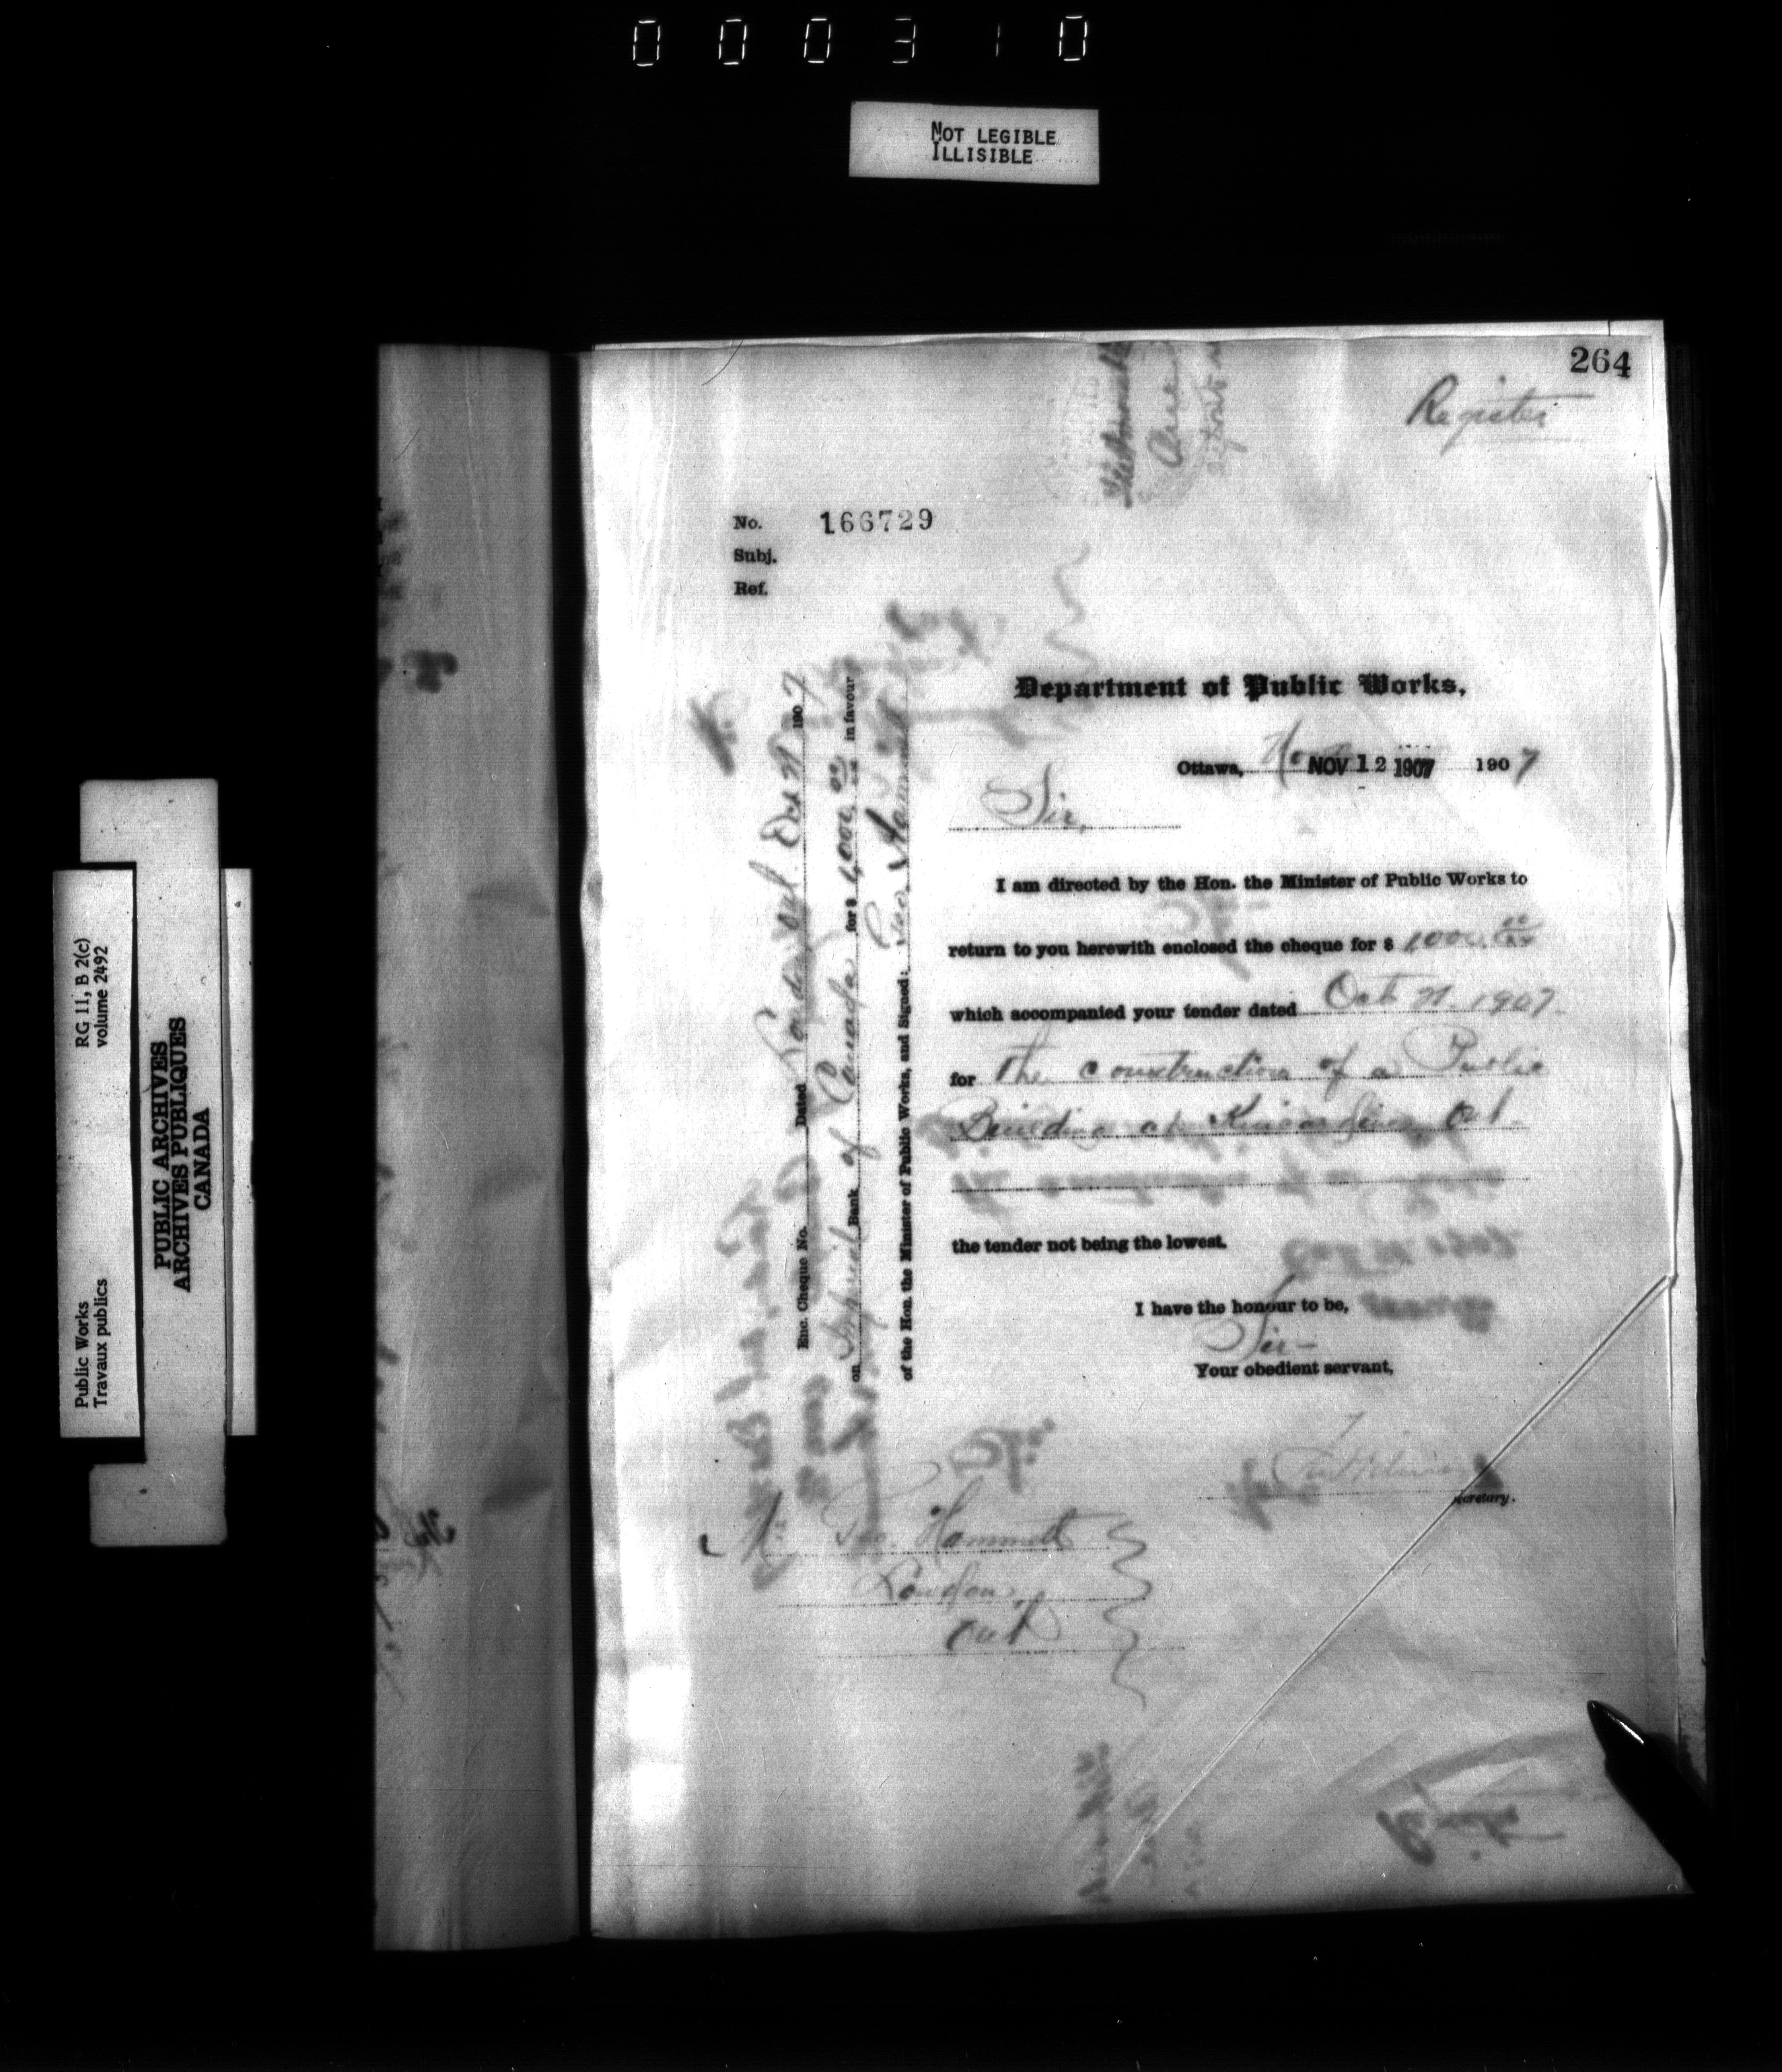 000310
NOT LEGIBLE
ILLISIBLE
264
Register
No. 166729
Subj.
Ref.
Department of Public Works,
Ottawa, NOV 12 1907 1907
Sir,
I am directed by the Hon. the Minister of Public Works to
return to you herewith enclosed the cheque for $ 1000.00/xx
which accompanied your tender dated Oct 21 1907.
for The construction of a Public
Building at Kincardine, Ont.
the tender not being the lowest.
I have the honour to be,
Sir-
Your obedient servant,
Secretary.
Mr. Geo. Hammett
London,
Ont
Enc. Cheque No. Dated London Ont. Oct 21 1907
on Imperial Bank of Canada for $ 1,000.00/xx in favour
of the Hon. the Minister of Public Works, and Signed: Geo Hammett
RG 11, B 2(c)
volume 2492
PUBLIC ARCHIVES
ARCHIVES PUBLIQUES
CANADA
Public Works
Travaux publics